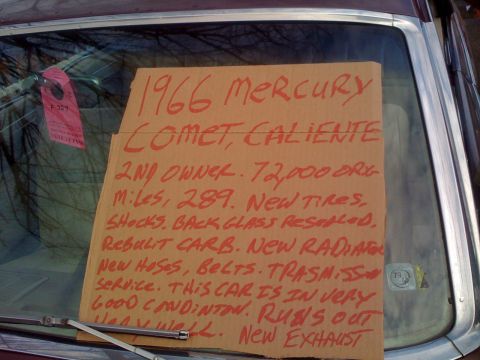 1966 MERCURY
COMET, CALIENTE
2ND OWNER. 72,000 ORG
MILES, 289. NEW TIRES,
SHOCKS. BACK GLASS RESEALED.
REBUILT CARB. NEW RADIATOR
NEW HOSES, BELTS. TRASMISSON
SERVICE. THIS CAR IS IN VERY
GOOD CONDINTON. RUNS OUT
VERY WELL. NEW EXHAUST